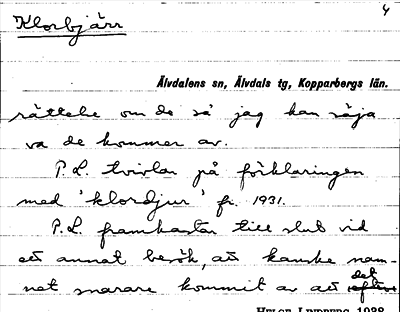 4
Klorbjärr
Älvdalens sn, Älvdals tg, Kopparbergs län.
rättelse om de så jag kan säja
va de kommer av.
P.L. tvivlar på förklaringen
med 'klordjur' fr. 1931.
P.L. framkastar till slut vid
ett annat besök, att kanske nam-
det
net snarare kommit av att efter
HELGE LINDBERG 1938